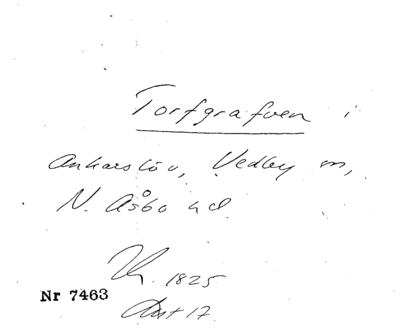 Torfgrafven i
Ankarslöv, Vedby sn,
N. Åsbo hd
1825
Nr 7463
17